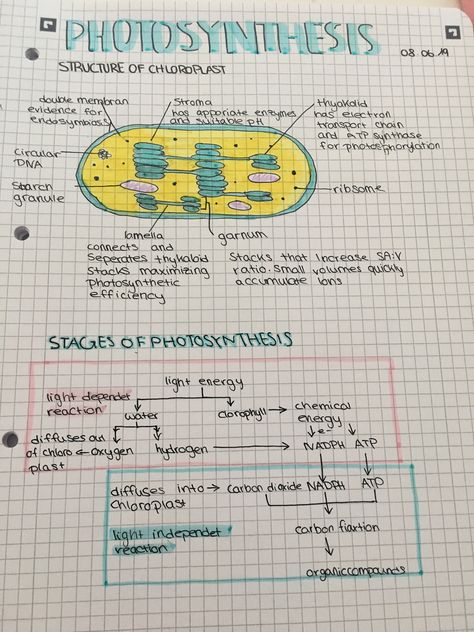 PHOTOSYNTHESIS
08.06.19
STRUCTURE OF CHLOROPLAST
double membran
evidence for
endosymbiosis
stroma
has approriate enzymes
and suitable pH
thyakolid
has electron
transport chain
and ATP synthase
for photosphorylation
circular
DNA
starch
granule
ribsome
lamella
connects and
seperates thykaloid
stacks maximizing
photosynthetic
efficiency
garnum
stacks that increase SA:V
ratio. small volumes quickly
accumulate ions
STAGES OF PHOTOSYNTHESIS
light dependet
reaction
light energy
water
clorophyll
chemical
energy
e-
diffuses out
of chloro
plast
oxygen
hydrogen
NADPH ATP
diffuses into
chloroplast
carbon dioxide NADPH ATP
light independet
reaction
carbon fixtion
organic compounds